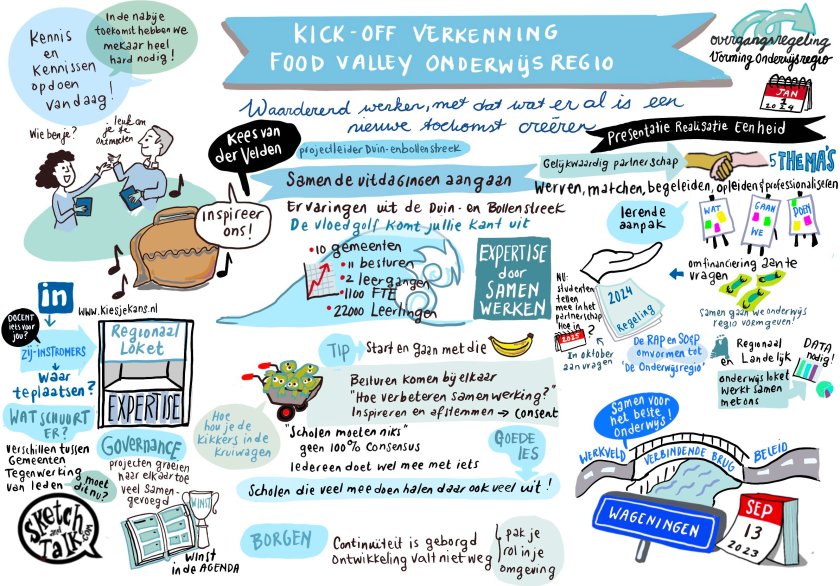 KICK-OFF VERKENNING
FOOD VALLEY ONDERWIJSREGIO
Kennis
en
kennissen
opdoen
vandaag!
In de nabije
toekomst hebben we
mekaar heel
hard nodig!
Wie ben je?
leuk om
je te
ontmoeten
overgangsregeling
Vorming Onderwijsregio
JAN
1
2024
Waarderend werken, met dat wat er al is een
nieuwe toekomst creëren
Kees van
der Velden
projectleider Duin-enbollenstreek
inspireer
ons!
Samen de uitdagingen aangaan
Ervaringen uit de Duin- en Bollenstreek
De vloedgolf komt jullie kant uit
• 10 gemeenten
• 11 besturen
• 2 leergangen
• 1100 FTE
• 22000 Leerlingen
EXPERTISE
door
SAMEN
WERKEN
Presentatie Realisatie Eenheid
Gelijkwaardig partnerschap
5 THEMA'S
Werven, matchen, begeleiden, opleiden & professionaliseren
lerende
aanpak
WAT
GAAN
WE
DOEN
om financiering aan te
vragen
NU:
studenten
tellen
mee in het
partnerschap
"Hoe in
2025
?
In oktober
aanvragen
2024
Regeling
Samen gaan we onderwijs
regio vormgeven!
De RAP en SO&P
omvormen tot
'De Onderwijsregio'
Regionaal
en Landelijk
DATA
nodig!
onderwijsloket
werkt samen
met ons
in
www.kiesjekans.nl
DOCENT
iets voor
jou?
ZIJ-INSTROMERS
Waar
te plaatsen?
Regionaal
Loket
EXPERTISE
WAT SCHUURT
ER?
Verschillen tussen
Gemeenten
Tegenwerking
van leden
moet
dit nu?
GOVERNANCE
projecten groeien
naar elkaar toe
veel Samen-
gevoegd
WINST
WINST
in de AGENDA
Sketch
and
Talk
.com
TIP
Start en gaan met die
Hoe
hou je de
kikkers in de
kruiwagen
Besturen komen bij elkaar
"Hoe verbeteren samenwerking?"
Inspireren en afstemmen → consent
"Scholen moeten niks"
geen 100% consensus
Iedereen doet wel mee met iets
GOEDE
LES
Scholen die veel mee doen halen daar ook veel uit!
BORGEN
Continuïteit is geborgd
ontwikkeling valt niet weg
pak je
rol in je
omgeving
Samen voor
het beste
Onderwijs!
WERKVELD
VERBINDENDE BRUG
BELEID
WAGENINGEN
SEP
13
2023